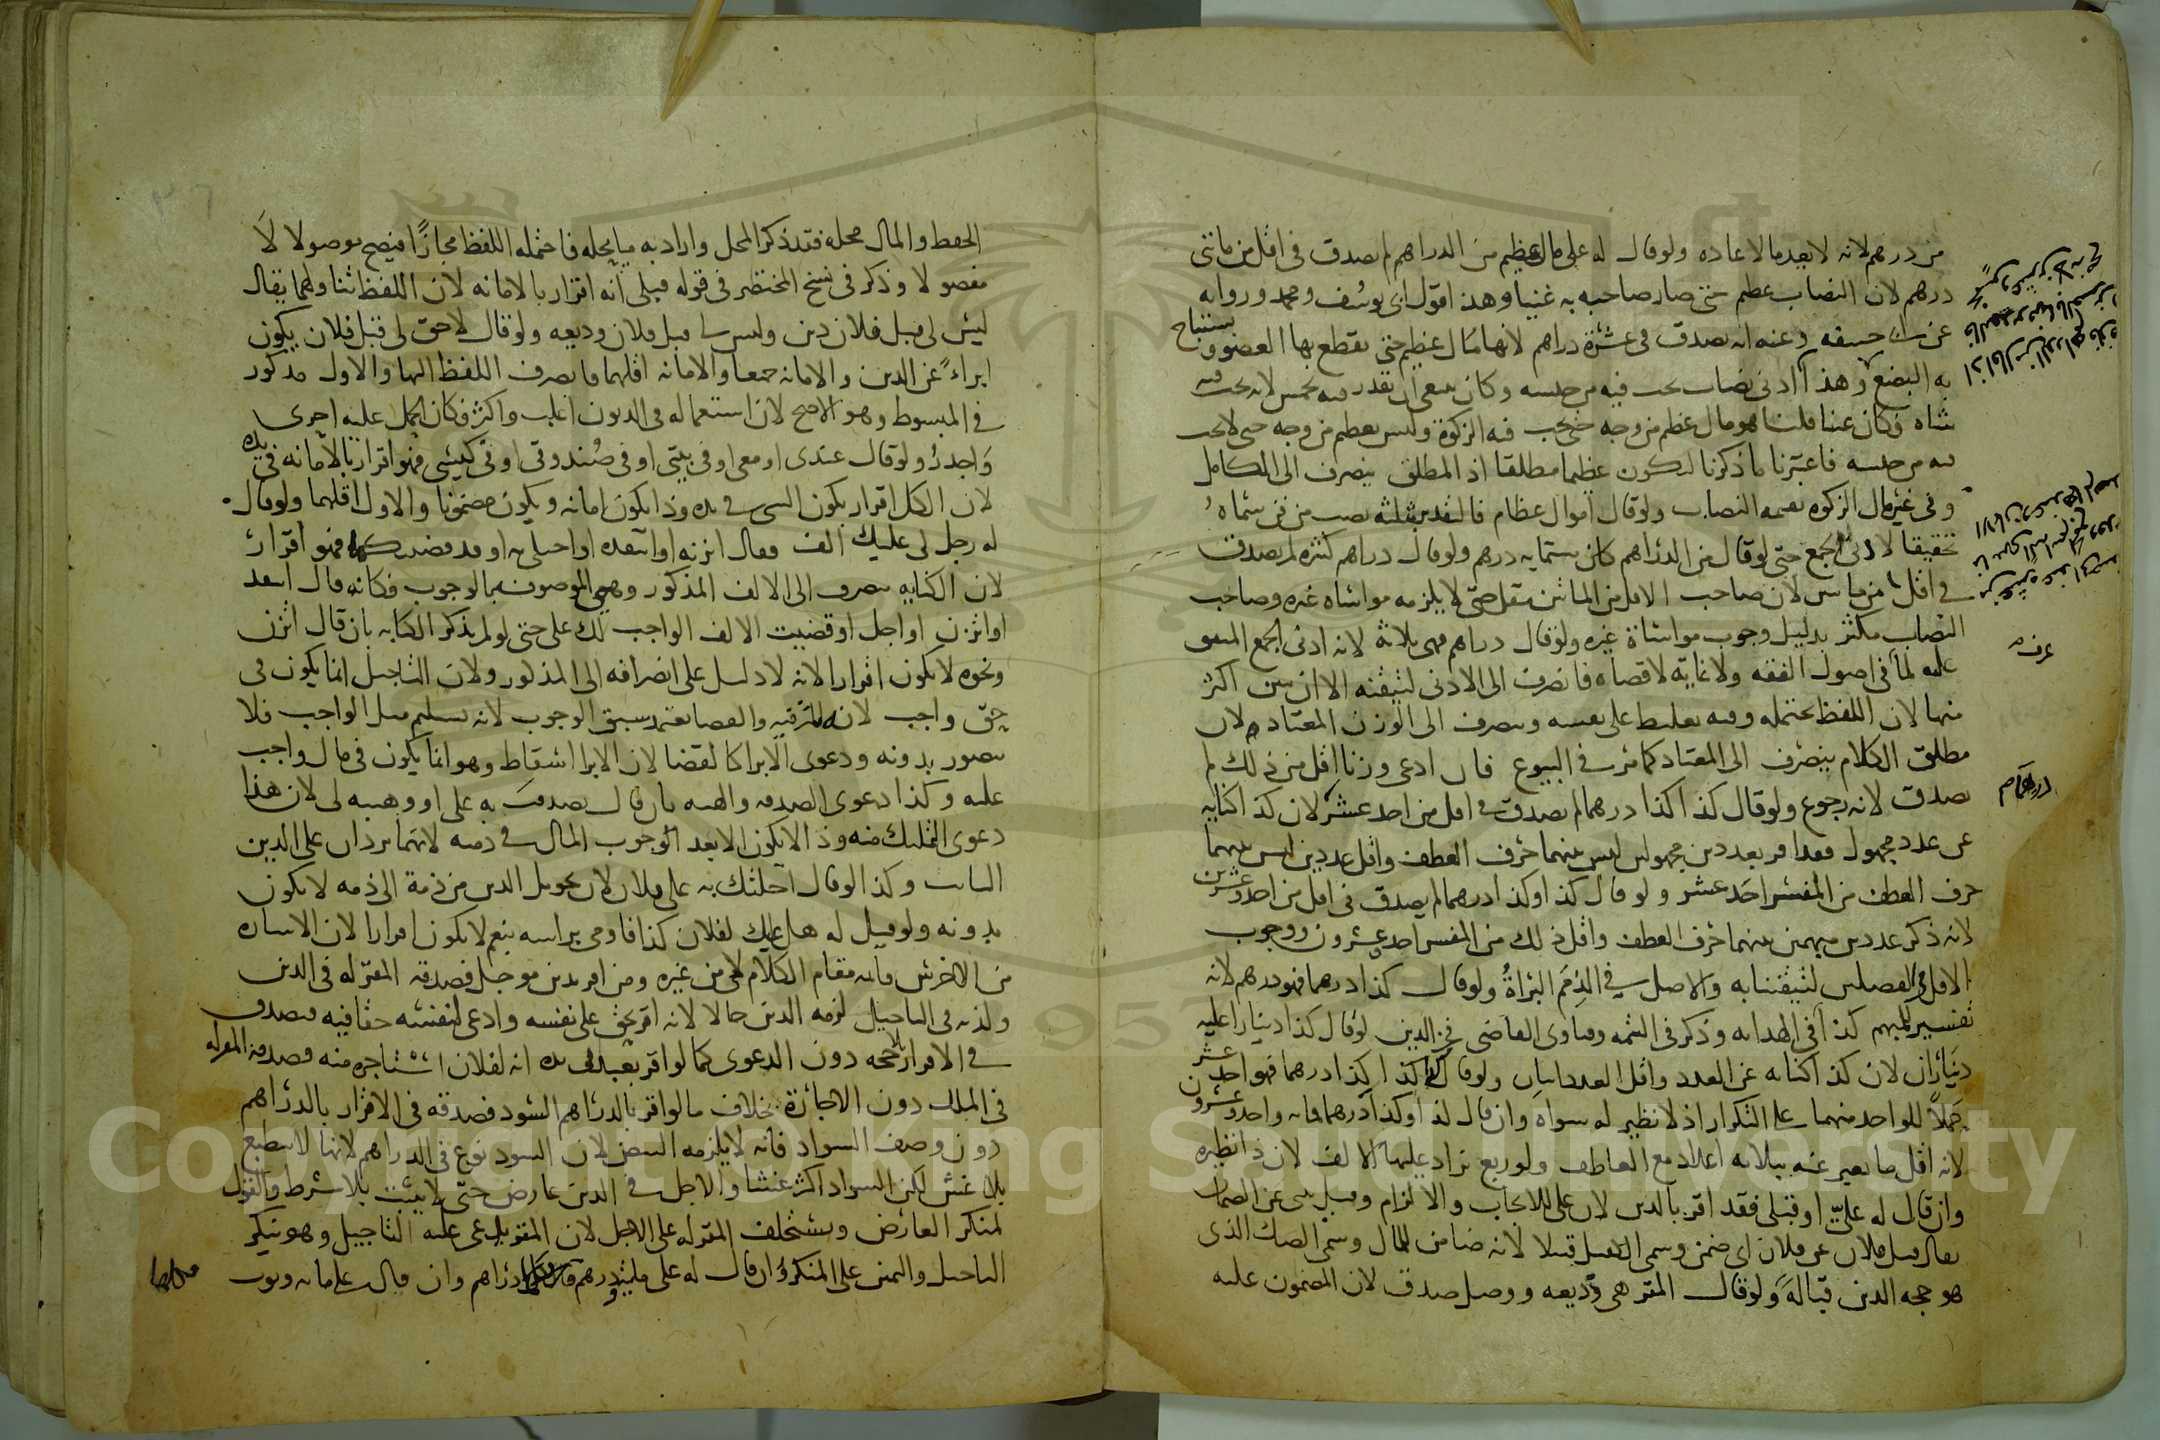 من درهم لانه لا يعد مالا عادة ولو قال له علي مال عظيم من الدراهم لم يصدق في اقل من مائتي
درهم لان النصاب عظيم حتى صار صاحبه به غنيا وهذا قول ابي يوسف ومحمد ورواية
عن ابي حنيفه وعنه انه يصدق في عشرة دراهم لانها مال عظيم حتى يقطع بها العضو ويستباح
به البضع وهذا ادنى نصاب يجب فيه من جنسه وكان ينبغي ان يقدر فيه بخمس لانه يجب فيه
شاة وكان غنيا قلنا هو مال عظيم من وجه حتى يجب فيه الزكوة وليس بعظيم من وجه حتى لا يجب
فيه من جنسه فاعتبرنا ما ذكرنا ليكون عظيما مطلقا اذ المطلق ينصرف الى الكامل
وفي غير مال الزكوة بقيمة النصاب ولو قال اموال عظام فالتقدير بثلثه نصب من فن سماه
تحقيقا لادنى الجمع حتى لو قال من الدراهم كان ستمايه درهم ولو قال دراهم كثيرة لم يصدق
في اقل من مايتين لان صاحب الاقل من المائتين مقل حتى لا يلزمه مواساة غيره وصاحب
النصاب مكثر بدليل وجوب مواساة غيره ولو قال دراهم فهي ثلاثة لانه ادنى الجمع المتفق
عليه لما في اصول الفقه ولا غاية لاقصاه فانصرف الى الادنى لتيقنه الا ان يبين اكثر
منها لان اللفظ يحتمله وفيه تغليظ على نفسه وينصرف الى الوزن المعتاد لان
مطلق الكلام ينصرف الى المعتاد كما مر في البيوع فان ادعى وزنا اقل من ذلك لم
يصدق لانه رجوع ولو قال كذا كذا درهما لم يصدق في اقل من احد عشر لان كذا كناية
عن عدد مجهول فقد اقر بعددين مجهولين ليس بينهما حرف العطف واقل عددين ليس بينهما
حرف العطف من المفسر احد عشر ولو قال كذا وكذا درهما لم يصدق في اقل من احد وعشرين
لانه ذكر عددين مبهمين بينهما حرف العطف واقل ذلك من المفسر احد وعشرون ووجوب
الاقل في الفصلين لتيقننا به والاصل في الذمم البراءة ولو قال كذا درهما فهو درهم لانه
تفسير للمبهم كذا في الهداية وذكر في التتمه وفتاوى القاضي في الدين لو قال كذا دينارا عليه
ديناران لان كذا كناية عن العدد واقل العدد اثنان ولو قال كذا كذا كذا درهما فهو احد عشر
حملا للواحد منهما على التكرار اذ لا نظير له سواه وان قال كذا وكذا وكذا درهما فمائه واحد وعشرون
لانه اقل ما يعبر عنه بثلاثه اعداد مع العاطف ولو ربع يزاد عليها الالف لان ذا نظيره
وان قال له علي او قبلي فقد اقر بالدين لان علي للايجاب والالزام وقبلي ينبئ عن الضمان
يقال قبل فلان عن فلان اي ضمن وسمي الكفيل قبيلا لانه ضامن للمال وسمي الصك الذي
هو حجة الدين قبالة ولو قال المقر هي وديعه ووصل صدق لان المضمون عليه
عرف
درهما
الحفظ والمال محله فقد ذكر المحل واراد به ما يحله فاحتمله اللفظ مجازا فيصح موصولا لا
مفصولا وذكر في نسخ المختصر في قوله قبلي انه اقرار بالامانه لان اللفظ تناولهما يقال
ليس لي قبل فلان دين وليس لي قبل فلان وديعه ولو قال لا حق لي قبل فلان يكون
ابراء عن الدين والامانه جميعا والامانه اقلهما فانصرف اللفظ اليها والاول مذكور
في المبسوط وهو الاصح لان استعماله في الديون اغلب واكثر فكان الحمل عليه احرى
واجدر ولو قال عندي او معي او في بيتي او في صندوقي او في كيسي فهو اقرار بالامانه في يده
لان الكل اقرار بكون الشي في يده وذا يكون امانه ويكون مضمونا والاول اقلهما ولو قال
له رجل لي عليك الف فقال اتزنه او انتقده او اجلني به او قد قضيتكها فهو اقرار
لان الكنايه تنصرف الى الالف المذكور وهي الموصوفه بالوجوب فكانه قال انتقد
او اتزن او اجل او قضيت الالف الواجب لك علي حتى لو لم يذكر الكنايه بان قال اتزن
ونحوه لا يكون اقرارا لانه لا دليل على انصرافه الى المذكور ولان التاجيل انما يكون في
حق واجب لانه للترفيه والقضا يعتمد سبق الوجوب لانه تسليم مثل الواجب فلا
يتصور بدونه ودعوى الابرا كالقضا لان الابرا اسقاط وهو انما يكون في مال واجب
عليه وكذا دعوى الصدقه والهبه بان قال تصدقت به علي او وهبته لي لان هذا
دعوى التمليك منه وذا لا يكون الا بعد الوجوب المال في ذمته لانهما يردان على الدين
الثابت وكذا لو قال احلتك به على فلان لان تحويل الدين من ذمة الى ذمه لا يكون
بدونه ولو قيل له هل عليك لفلان كذا فاومى براسه بنعم لا يكون اقرارا لان الاشاره
من الاخرس قائمه مقام الكلام لا من غيره ومن اقر بدين موجل فصدقه المقر له في الدين
وكذبه في التاجيل لزمه الدين حالا لانه اقر بحق على نفسه وادعى لنفسه حقا فيه فيصدق
في الاقرار بلا حجه دون الدعوى كما لو اقر بعبد في يده انه لفلان استاجره منه فصدقه المقر له
في الملك دون الاجارة بخلاف ما لو اقر بالدراهم السود فصدقه في الاقرار بالدراهم
دون وصف السواد فانه لا يلزمه البيض لان السود نوع في الدراهم لانها لا تنطبع
بلا غش لكن السواد اكثر غشا والاجل في الدين عارض حتى لا يثبت بلا شرط والقول
لمنكر العارض ويستحلف المقر له على الاجل لان المقر يدعي عليه التاجيل وهو ينكر
التاجيل واليمين على المنكر وان قال له علي مائة ودرهم فكلها دراهم وان قال علي مائه وثوب